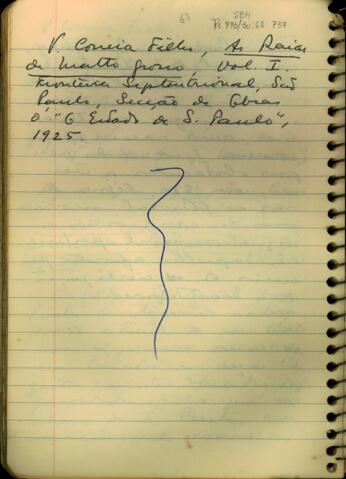 63
SBH
Pi 770/30.63 737
V. Correia Filho, As Raias
de Matto Grosso, Vol. I.
Fronteira Septentrional, São
Paulo, Secção de Obras
d' "O Estado de S. Paulo",
1925.